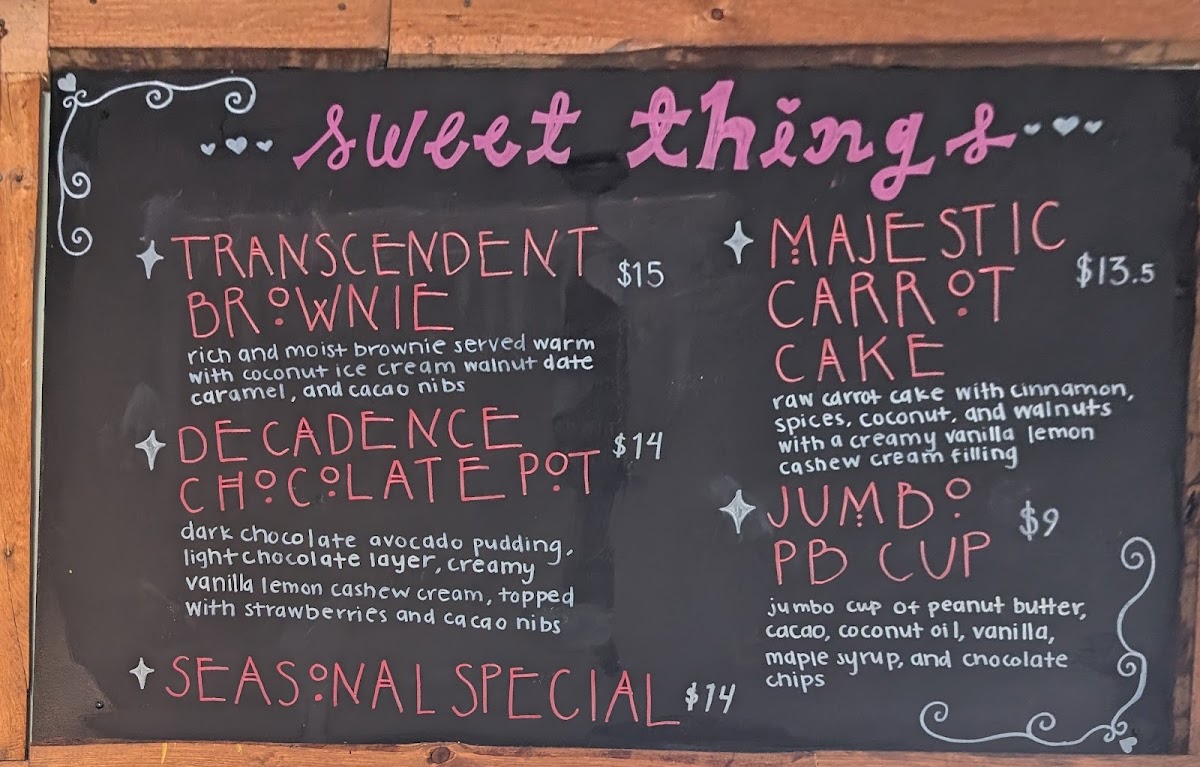 sweet things
TRANSCENDENT
BROWNIE
$15
rich and moist brownie served warm
with coconut ice cream walnut date
caramel, and cacao nibs
DECADENCE
CHOCOLATE POT
$14
dark chocolate avocado pudding,
light chocolate layer, creamy
vanilla lemon cashew cream, topped
with strawberries and cacao nibs
SEASONAL SPECIAL $14
MAJESTIC
CARROT
CAKE
$13.5
raw carrot cake with cinnamon,
spices, coconut, and walnuts
with a creamy vanilla lemon
cashew cream filling
JUMBO
PB CUP
$9
jumbo cup of peanut butter,
cacao, coconut oil, vanilla,
maple syrup, and chocolate
chips